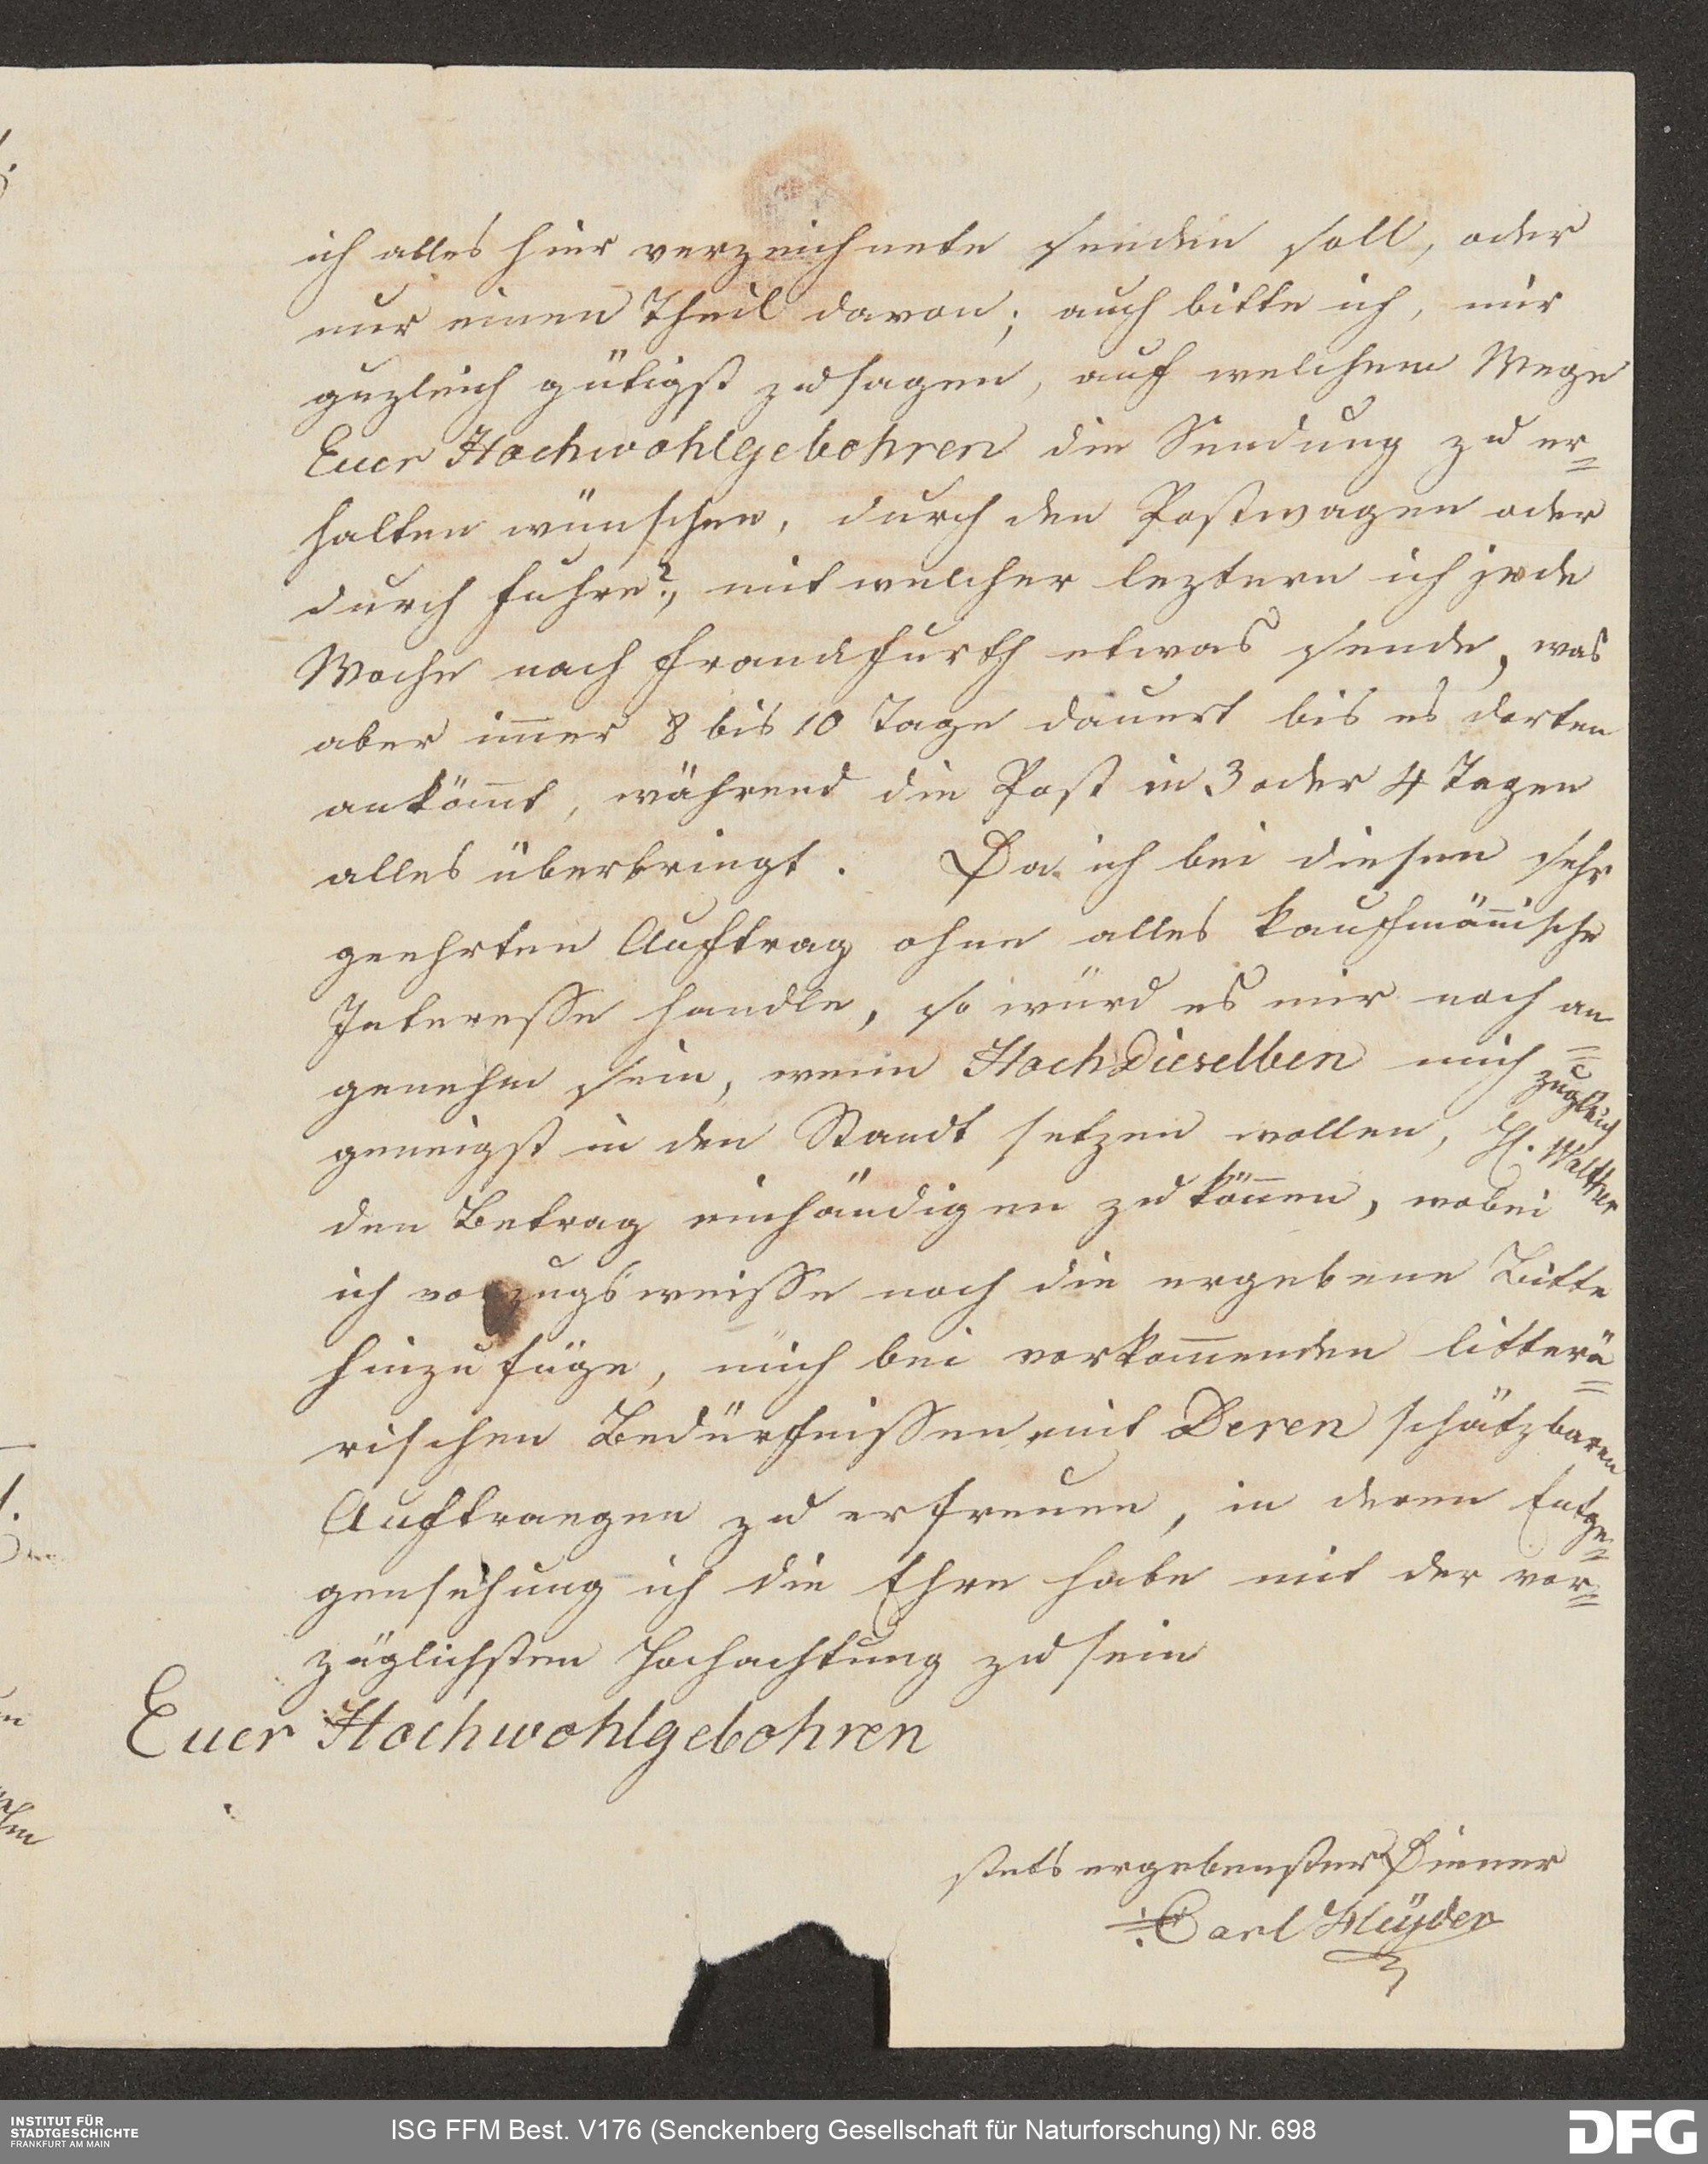 ich alles hier verzeichnete senden soll, oder
nur einen Theil davon; auch bitte ich, mir
zugleich gütigst zu sagen, auf welchem Wege
Euer Hochwohlgebohren die Sendung zu er=
halten wünschen, durch den Postwagen oder
durch Fuhre?, mit welcher leztern ich jede
Woche nach Frankfurth etwas sende, was
aber im̅er 8 bis 10 Tage dauert bis es dorten
anköm̅t, während die Post in 3 oder 4 Tagen
alles überbringt. Da ich bei diesem sehr
geehrten Auftrag ohne alles kaufmän̅ische
Interesse handle, so würd es mir noch an=
genehm sein, wenn HochDieselben mich zugleich
geneigst in den Standt setzen wollen, H. Walther
den Betrag einhändigen zu kön̅en, wobei
ich vorzugsweisse noch die ergebene Bitte
hinzu füge, mich bei vorkom̅enden litterä=
rischen Bedürfnissen mit Deren schätzbaren
Auftraegen zu erfreuen, in deren Entge=
gensehung ich die Ehre habe mit der vor=
züglichsten Hochachtung zu sein
Euer Hochwohlgebohren
stets ergebenster Diener
Carl
INSTITUT FÜR
STADTGESCHICHTE
FRANKFURT AM MAIN
ISG FFM Best. V176 (Senckenberg Gesellschaft für Naturforschung) Nr. 698
DFG